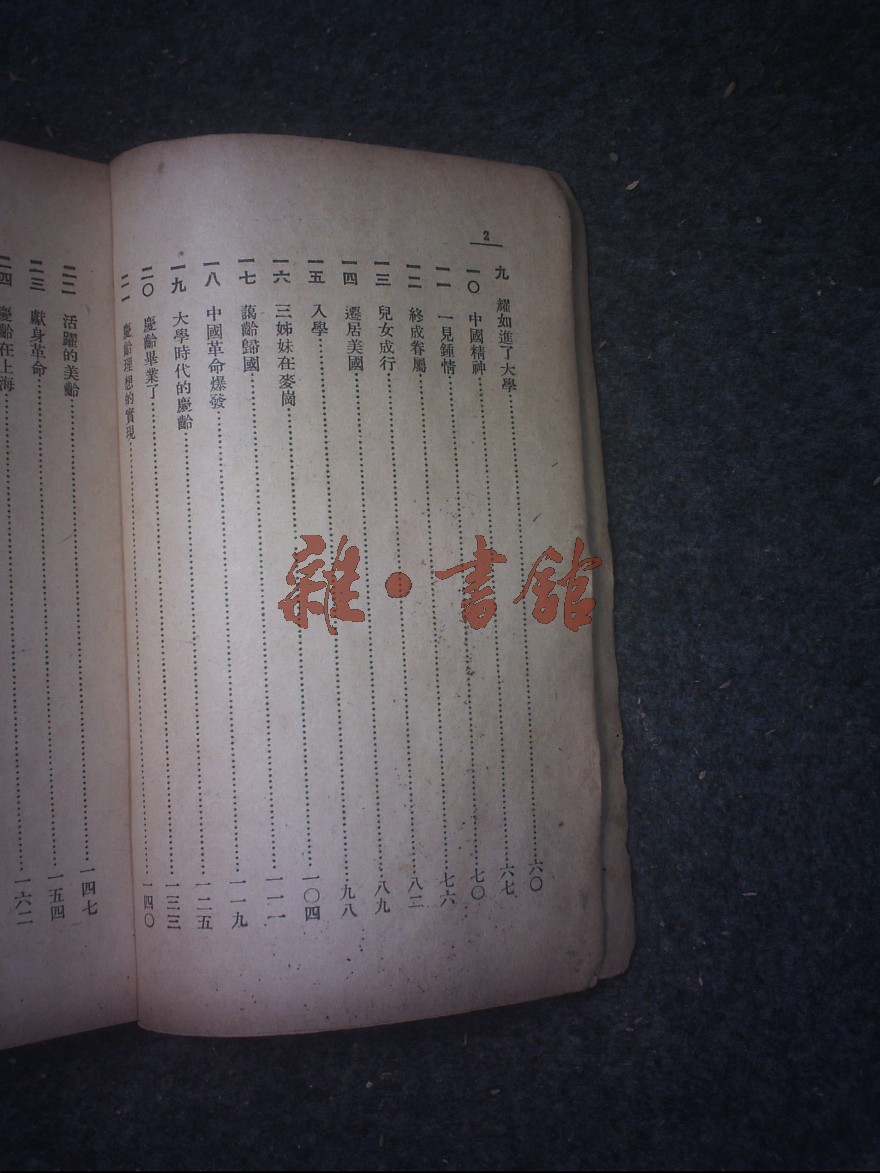 2
九 耀如進了大學……六〇
一〇 中國精神……六七
一一 一見鍾情……七〇
一二 終成眷屬……七六
一三 兒女成行……八二
一四 遷居美國……八九
一五 入學……九八
一六 三姊妹在麥崗……一〇四
一七 藹齡歸國……一一一
一八 中國革命爆發……一一九
一九 大學時代的慶齡……一二五
二〇 慶齡畢業了……一三三
二一 慶齡理想的實現……一四〇
二二 活躍的美齡……一四七
二三 獻身革命……一五四
二四 慶齡在上海……一六二
雜·書館